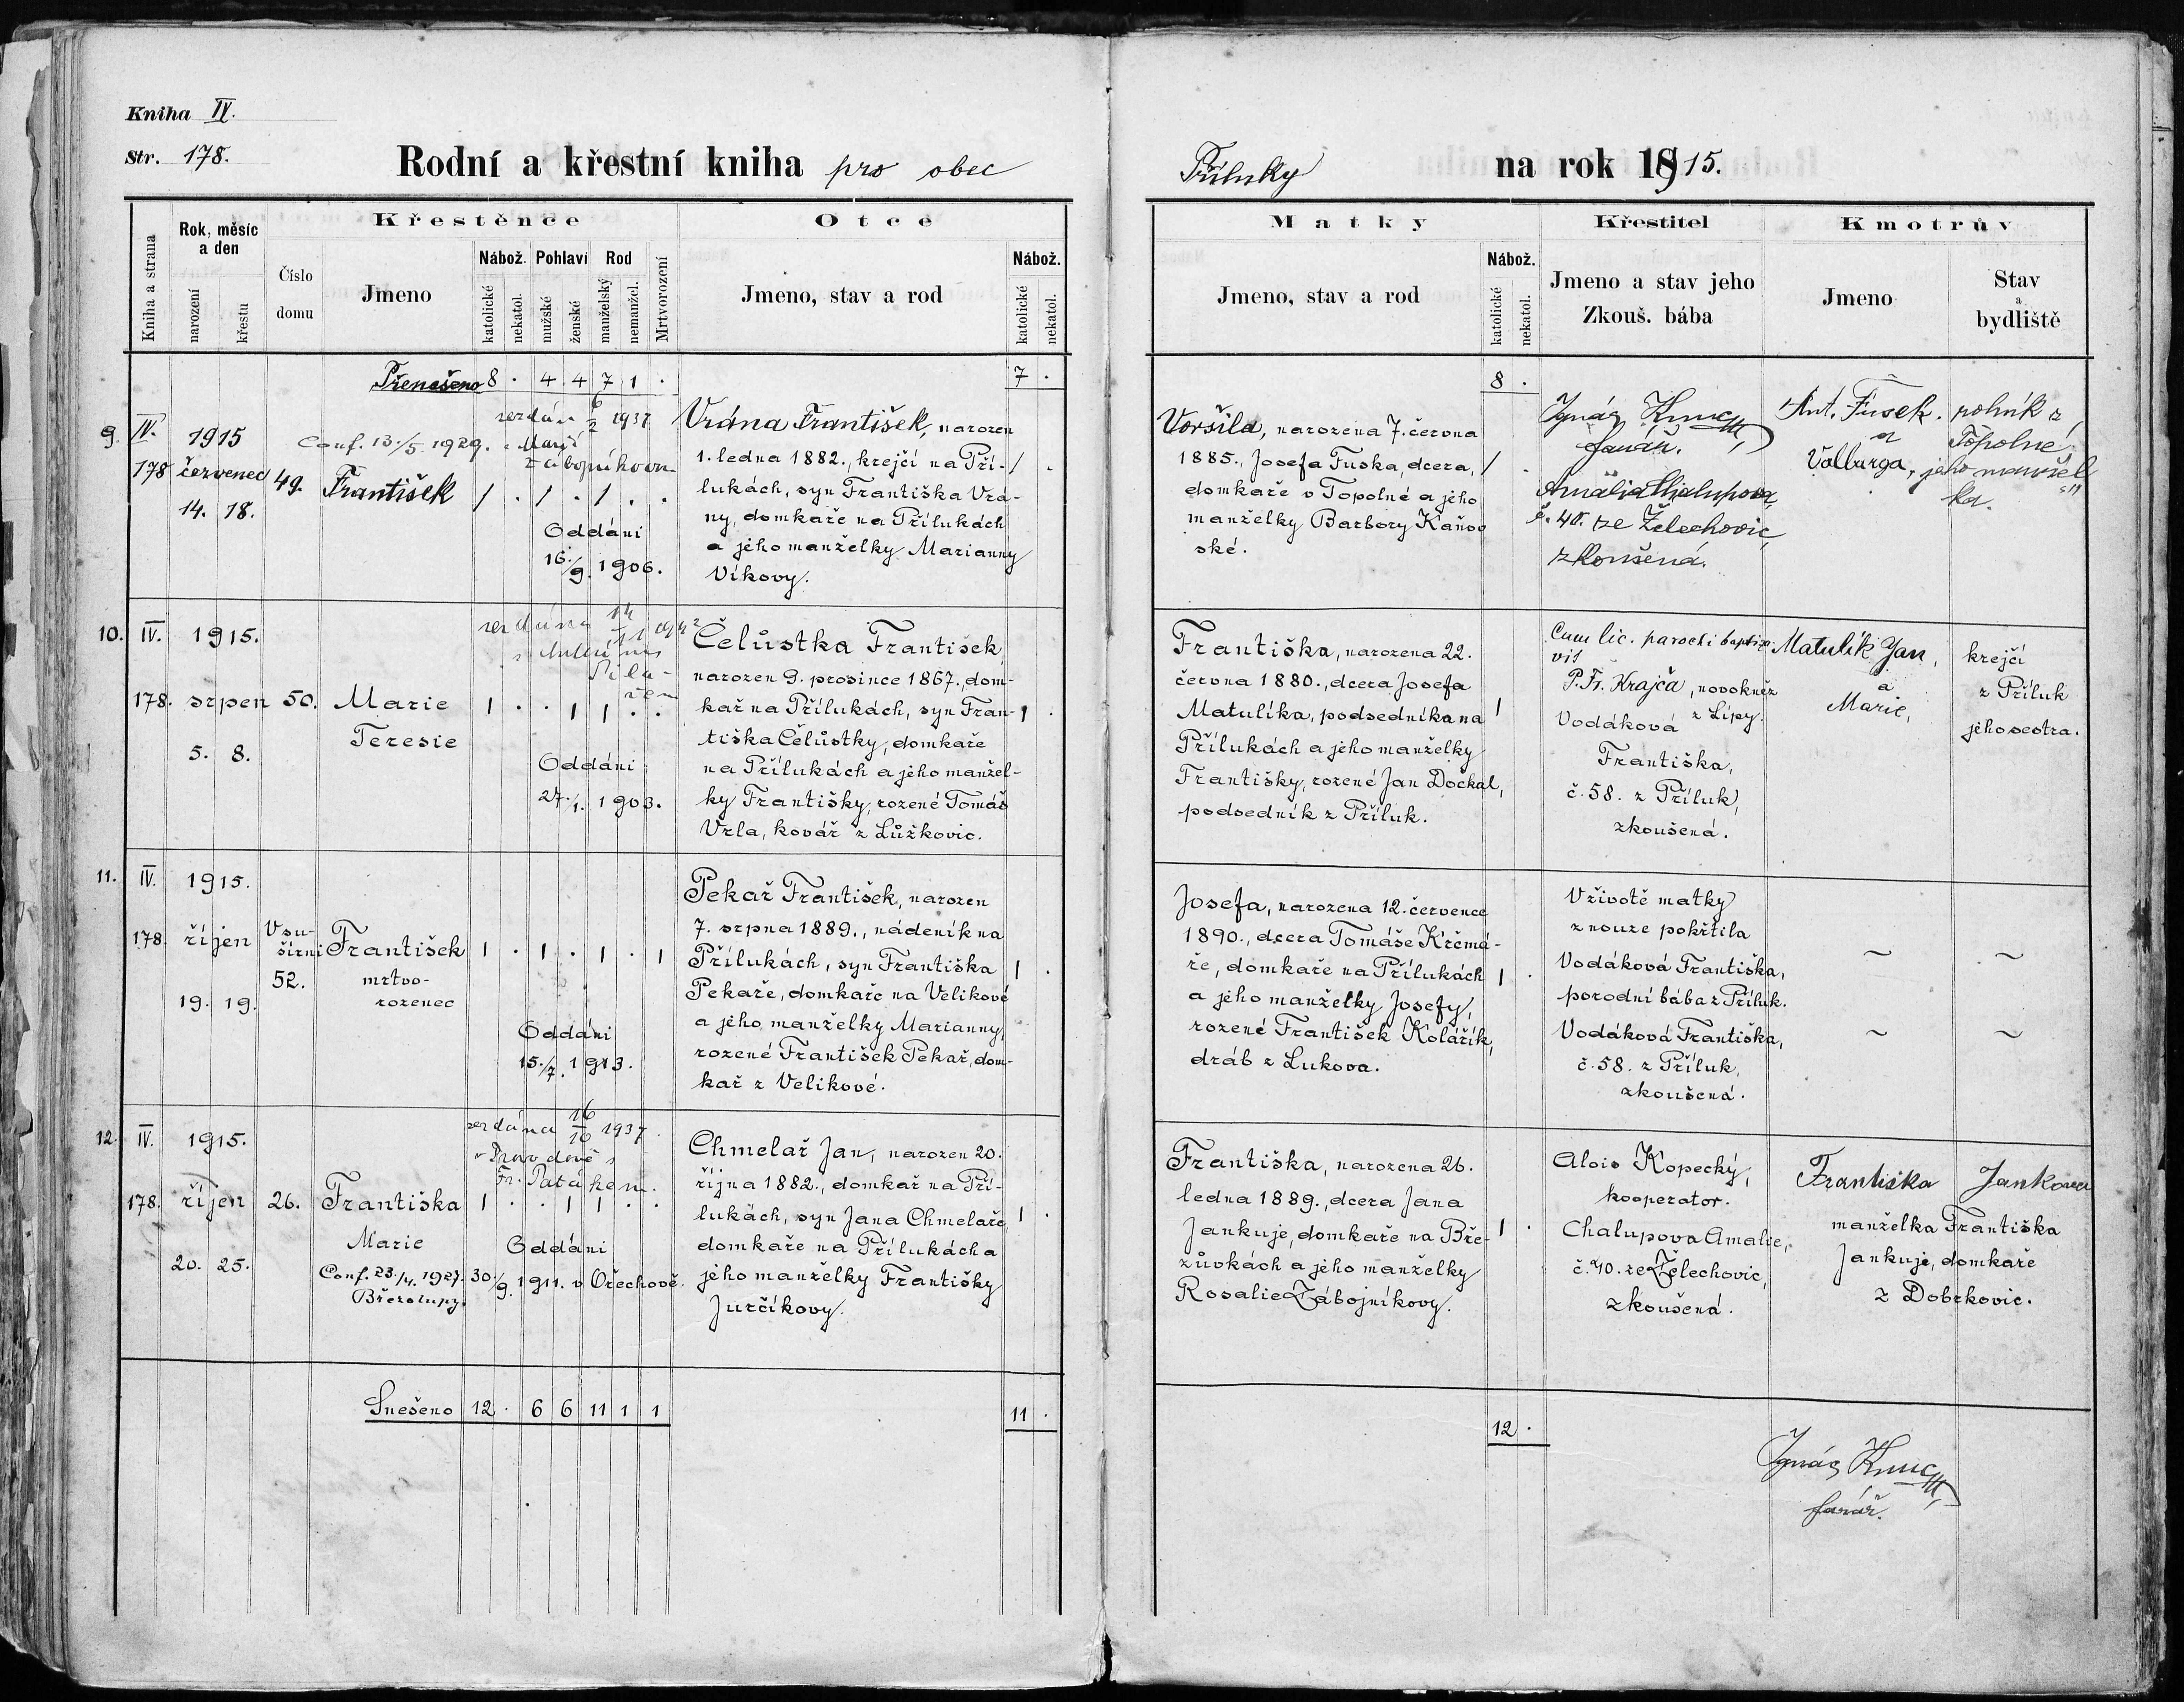 Kniha IV.
Str. 178.
Rodní a křestní kniha pro obec
Přiluky
na rok 1915.
Kniha a strana
Rok, měsíc
a den
narození
křestu
Číslo
domu
Křestěnce
Jmeno
Nábož.
katolické
nekatol.
Pohlaví
mužské
ženské
Rod
manželský
nemanžel.
Mrtvorození
Otce
Jmeno, stav a rod
Nábož.
katolické
nekatol.
Matky
Jmeno, stav a rod
Nábož.
katolické
nekatol.
Křestitel
Jmeno a stav jeho
Zkouš. bába
Kmotrův
Jmeno
Stav
a
bydliště
Přenešeno 8 . 4 4 7 1 .
7 .
8 .
9. IV. 1915
178 červenec
14. 18.
49.
Conf. 13./5. 1929.
František
1 . 1 . 1 . .
6/2 1937
Marií
Zábojníkovou
Oddáni
16./9. 1906.
Vrána František, narozen
1. ledna 1882., krejčí na Pří-
lukách, syn Františka Vrá-
ny, domkaře na Přílukách
a jeho manželky Marianny
Víkovy.
1 .
Voršila, narozena 7. června
1885., Josefa Fuska, dcera,
domkaře v Topolné a jeho
manželky Barbory Kaňov-
ské.
1 .
Ignác
farář.
Amalia Chalupova,
č. 40. ze Želechovic,
zkoušená.
Ant. Fusek.
a
Valburga,
rolník z
Topolné
jeho manžel
ka.
10. IV. 1915.
178. srpen
5. 8.
50.
Marie
Teresie
1 . . 1 1 . .
14/11
Oddáni
27./1. 1903.
Čelůstka František,
narozen 9. prosince 1867., dom-
kař na Přílukách, syn Fran-
tiška Čelůstky, domkaře
na Přílukách a jeho manžel-
ky Františky, rozené Tomáš
Vrla, kovář z Lůžkovic.
1 .
Františka, narozena 22.
června 1880., dcera Josefa
Matulíka, podsedníka na
Přílukách a jeho manželky
Františky, rozené Jan Dočkal,
podsedník z Příluk.
1
Cum lic. parochi baptiza-
vit
P. Fr. Krajča, novokněz
z Lípy.
Vodáková
Františka,
č. 58. z Příluk,
zkoušená.
Matulík Jan,
a
Marie,
krejčí
z Příluk
jeho sestra.
11. IV. 1915.
178. říjen
19. 19.
V su-
šírni
52.
František
mrtvo-
rozenec
1 . 1 . 1 . 1
Oddáni
15./7. 1913.
Pekař František, narozen
7. srpna 1889., nádeník na
Přílukách, syn Františka
Pekaře, domkaře na Velikové
a jeho manželky Marianny,
rozené František Pekař, dom-
kař z Velikové.
1 .
Josefa, narozena 12. července
1890., dcera Tomáše Krčmá-
ře, domkaře na Přílukách
a jeho manželky Josefy,
rozené František Kolářík,
dráb z Lukova.
1 .
V životě matky
z nouze pokřtila
Vodáková Františka,
porodní bába z Příluk.
Vodáková Františka,
č. 58. z Příluk,
zkoušená.
~ ~
~ ~
12. IV. 1915.
178. říjen
20. 25.
26.
Františka
Marie
Conf. 23./4. 1927.
Březolupy.
1 . . 1 1 . .
16/10 1937.
Fr. Patákem.
Oddáni
30./9. 1911. v Ořechově.
Chmelař Jan, narozen 20.
října 1882., domkař na Pří-
lukách, syn Jana Chmelaře,
domkaře na Přílukách a
jeho manželky Františky
Jurčíkovy.
1 .
Františka, narozena 26.
ledna 1889., dcera Jana
Jankuje, domkaře na Bře-
zůvkách a jeho manželky
Rosalie Zábojníkovy.
1 .
Alois Kopecký,
kooperator.
Chalupova Amalie,
č. 40. ze Želechovic,
zkoušená.
Františka Janková
manželka Františka
Jankuje, domkaře
z Dobrkovic.
Snešeno 12 . 6 6 11 1 1
11 .
12 .
Ignác
farář.